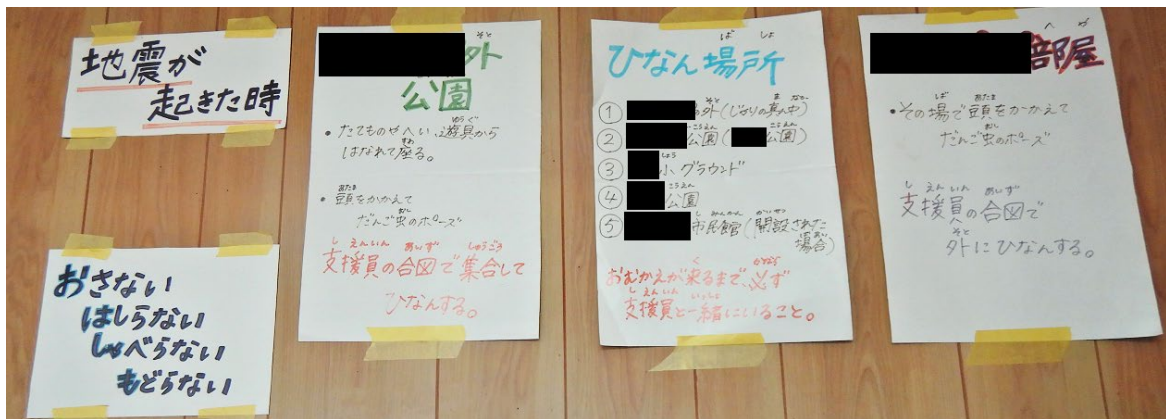 地震が
起きた時
おさない
はしらない
しゃべらない
もどらない
外
公園
・たてものやへい、遊具から
はなれて座る。
・頭をかかえて
だんご虫のポーズ
支援員の合図で集合して
ひなんする。
ひなん場所
① 外(じゃりの真ん中)
② 公園( 公園)
③ 小グラウンド
④ 公園
⑤ 市民館(開設された
場合)
おむかえが来るまで、必ず
支援員と一緒にいること。
部屋
・その場で頭をかかえて
だんご虫のポーズ
支援員の合図で
外にひなんする。